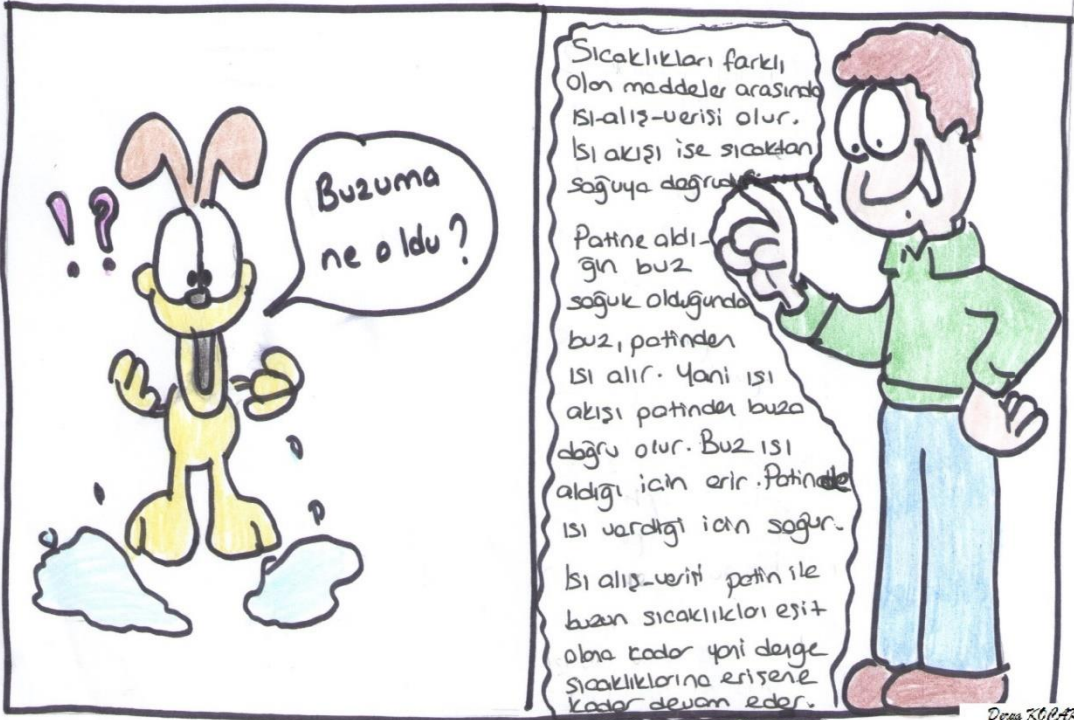 !?
Buzuma
ne oldu?
Sıcaklıkları farklı
olan maddeler arasında
ısı-alış-verişi olur.
Isı akışı ise sıcaktan
soğuya doğrudur
Patine aldı-
ğın buz
soğuk olduğunda
buz, patinden
ısı alır. Yani ısı
akışı patinden buza
doğru olur. Buz ısı
aldığı için erir. Patinde
ısı verdiği için soğur.
Isı alış-verişi patin ile
buzun sıcaklıkları eşit
olana kadar yani denge
sıcaklıklarına erişene
kadar devam eder.
Derya